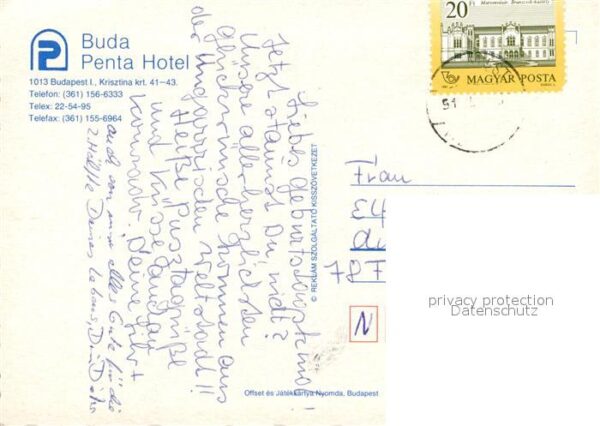 Buda
Penta Hotel
1013 Budapest I., Krisztina krt. 41–43.
Telefon: (361) 156-6333
Telex: 22-54-95
Telefax: (361) 155-6964
20 Ft
Martonvásár, Brunszvik-kastély
MAGYAR POSTA
91
Liebes Geburtstagskind!
Jetzt staunst Du, nicht?
Unsere allerherzlichsten
Glückwünsche kommen aus
der ungarischen Weltstadt!!
Heiße Pusztagrüße
und Küsse
Deine
auch von mir alles Gute für die
2. Hälfte Deines Lebens, Dein
© REKLÁM SZOLGÁLTATÓ KISSZÖVETKEZET
Frau
787
N
privacy protection
Datenschutz
Offset és Játékkártya Nyomda, Budapest